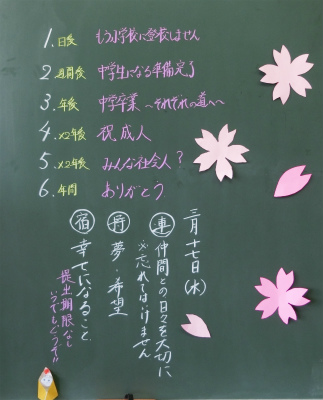 1. 日後 もう小学校に登校しません
2. 週間後 中学生になる準備完了
3. 年後 中学卒業 〜それぞれの道へ〜
4. ×2年後 祝 成人
5. ×2年後 みんな社会人?
6. 年間 ありがとう
三月十七日(水)
連 仲間との日々を大切に
※忘れてはいけません
持 夢・希望
宿 幸せになること
提出期限なし
いつでもどうぞ!!